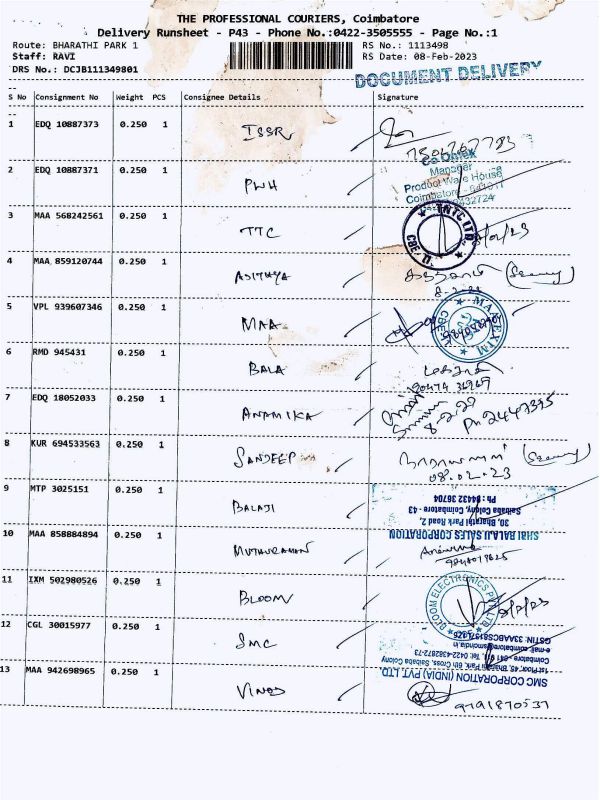 THE PROFESSIONAL COURIERS, Coimbatore
Delivery Runsheet - P43 - Phone No.:0422-3505555 - Page No.:1
Route: BHARATHI PARK 1 RS No.: 1113498
Staff: RAVI RS Date: 08-Feb-2023
DRS No.: DCJB111349801
DOCUMENT DELIVERY
S No Consignment No Weight PCS Consignee Details Signature
1 EDQ 10887373 0.250 1 ISSR
2 EDQ 10887371 0.250 1 PWH
Manager
Product Ware House
Coimbatore - 641011
3 MAA 568242561 0.250 1 TTC
TNTC LTD.
CBE.
4 MAA 859120744 0.250 1 ADITHYA
8.2.23
5 VPL 939607346 0.250 1 MAA
MAA EXIM
CBE.
6 RMD 945431 0.250 1 BALA
90474 36969
7 EDQ 18052033 0.250 1 ANAMIKA
8-2-23
Pn 2447395
8 KUR 694533563 0.250 1 SANDEEP
08.02.23
9 MTP 3025151 0.250 1 BALAJI
SHRI BALAJI SALES CORPORATION
30, Bharathi Park Road 2,
Saibaba Colony, Coimbatore - 43
Ph : 84432 36704
10 MAA 858884894 0.250 1 MUTHURAMAN
11 IXM 502980526 0.250 1 BLOOM
BLOOM ELECTRONICS PVT LTD
12 CGL 30015977 0.250 1 SMC
SMC CORPORATION (INDIA) PVT LTD.
1st Floor, 45, Bharathi Park 6th Cross, Saibaba Colony
Coimbatore - 641 011. Tel: 0422-4328272-73
13 MAA 942698965 0.250 1 VINOD
9791870537